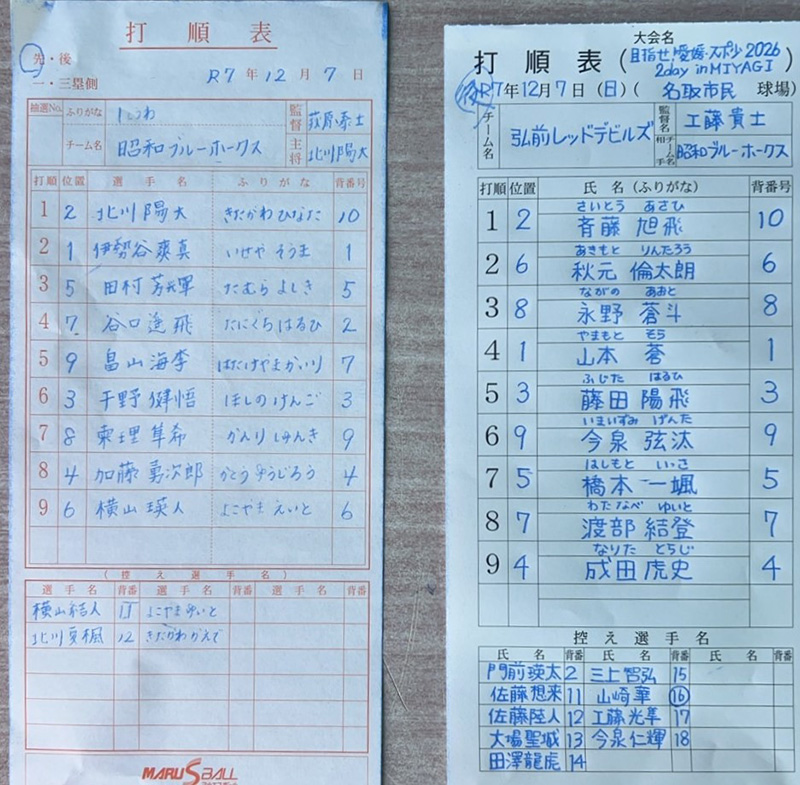 打順表
先・後
一・三塁側
R7年12月7日
抽選No.
ふりがな
しょうわ
監督
荻原泰士
チーム名
昭和ブルーホークス
主将
北川陽大
打順 位置 選手名 ふりがな 背番号
1 2 北川陽大 きたがわひなた 10
2 1 伊勢谷爽真 いせや そうま 1
3 5 田村 たむら よしき 5
4 7 谷口遥飛 たにぐちはるひ 2
5 9 畠山海李 はたけやまかいり 7
6 3 干野健悟 ほしのけんご 3
7 8 乗理隼希 かんりしゅんき 9
8 4 加藤勇次郎 かとうゆうじろう 4
9 6 横山瑛人 よこやまえいと 6
(控え選手名)
選手名 背番 選手名 背番 選手名 背番
横山結人 11 よこやまゆいと
北川夏楓 12 きたがわかえで
MARUS BALL
大会名
打順表(目指せ!愛媛・スポ少2026
2day in MIYAGI)
後
R7年12月7日(日)(名取市民球場)
チーム名
弘前レッドデビルズ
監督名
工藤貴士
相手チーム
昭和ブルーホークス
打順 位置 氏名(ふりがな) 背番号
さいとう あさひ
1 2 斉藤 旭飛 10
あきもと りんたろう
2 6 秋元 倫太朗 6
ながの あおと
3 8 永野 蒼斗 8
やまもと そら
4 1 山本 蒼 1
ふじた はるひ
5 3 藤田 陽飛 3
いまいずみ げんた
6 9 今泉 弦汰 9
はしもと いっさ
7 5 橋本 一颯 5
わたなべ ゆいと
8 7 渡部 結登 7
なりた とらじ
9 4 成田 虎史 4
控え選手名
氏名 背番 氏名 背番 氏名 背番
門前瑛太 2 三上智弘 15
佐藤想来 11 山崎華 16
佐藤陸人 12 工藤光隼 17
大場聖城 13 今泉仁輝 18
田澤龍虎 14